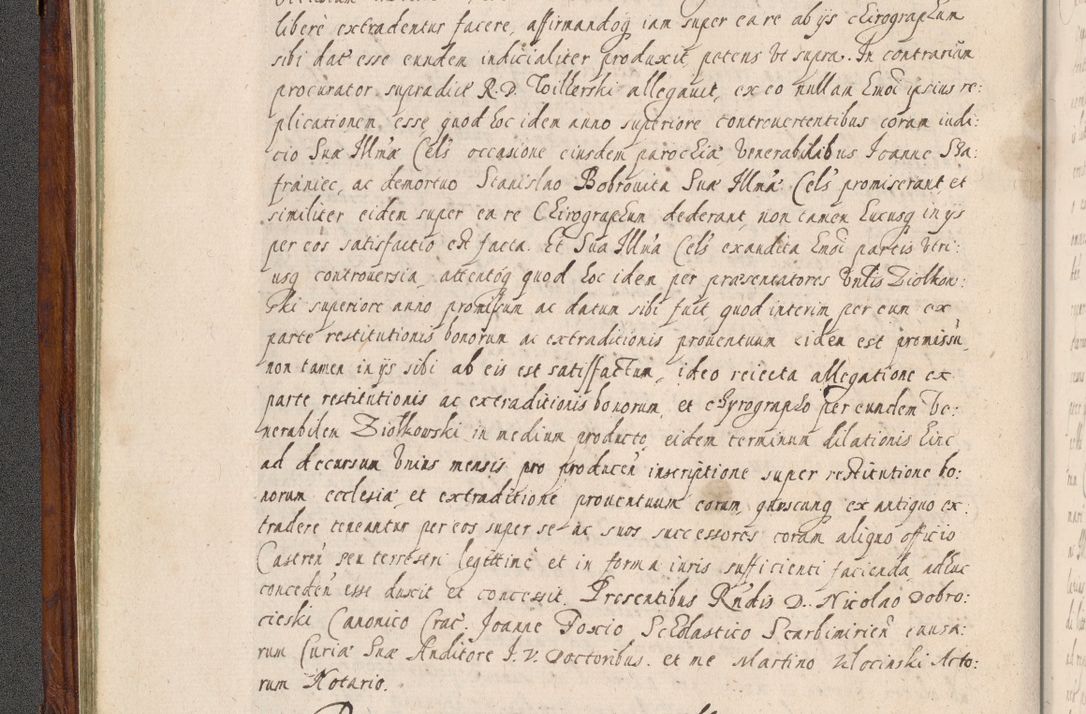 libere extradentur facere, affirmandoq iam super ea re ab ijs chirographum
sibi dat esse eundem indicialiter produxit petens ut supra. In contrariũ
procurator supradict R. D. Wilkerski allegavit, ex eo nullam huiõi ipsius re:
plicationem esse quod hoc idem anno superiore controvertentibus coram iudi:
cio Suæ Illmæ Cels occasione eiusdem parochiæ Venerabilibus Joanne Sta:
franiec, ac demortuo Stanislao Bobrovita Suæ Illmæ Cels promiserant et
similiter eidem super ea re Chirographum dederant, non tamen hucusq in ijs
per eos satisfactio est facta. Et Sua Illma Cels exaudita huiõi partis utri:
usq controversia, attentoq quod hoc idem per præsentatores Vnlis Ziolkow:
ski superiore anno promissum ac datum sibi fuit, quod interim per eum ex
parte restitutionis bonorum ac extraditionis proventuum eidem est promissũ,
non tamen in ijs sibi ab eis est satisfactum, ideo reiecta allegatione ex
parte restitutionis ac extraditionis bonorum, et chyrographo per eundem Ve:
nerabilem Ziołkowski in medium producto, eidem terminum dilationis hinc
ad decursum unius mensis pro producen inscriptione super restitutione bo:
norum ecclesiæ, et extraditione proventuum eorum, quoscunq ex antiquo ex:
tradere teneantur per eos super se ac suos successores coram aliquo officio
Castren seu terrestri legittime et in forma iuris sufficienti facienda, adhuc
conceden esse duxit et concessit. Presentibus Rndis D. Nicolao Dobro:
cieski Canonico Crac. Joanne Foxio Scholastico Scarbimirien causa:
rum Curiæ Suæ Auditore I. V. Doctoribus. et me Martino Ulocinski Acto:
rum Notario.